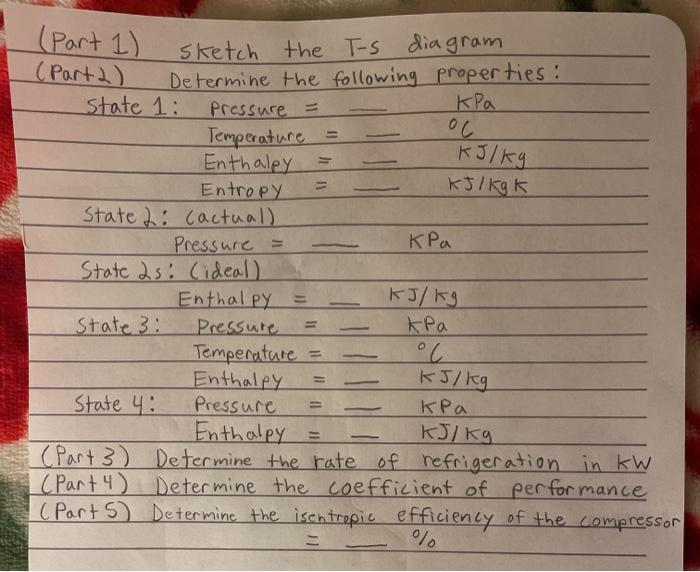 (Part 1) Sketch the T-s diagram
(Part 2) Determine the following properties:
State 1: Pressure = __ KPa
Temperature = __ °C
Enthalpy = __ KJ/kg
Entropy = __ KJ/kgK
State 2: (actual)
Pressure = __ KPa
State 2s: (ideal)
Enthalpy = __ KJ/kg
State 3: Pressure = __ KPa
Temperature = __ °C
Enthalpy = __ KJ/kg
State 4: Pressure = __ KPa
Enthalpy = __ KJ/kg
(Part 3) Determine the rate of refrigeration in KW
(Part 4) Determine the coefficient of performance
(Part 5) Determine the isentropic efficiency of the compressor
= __ %